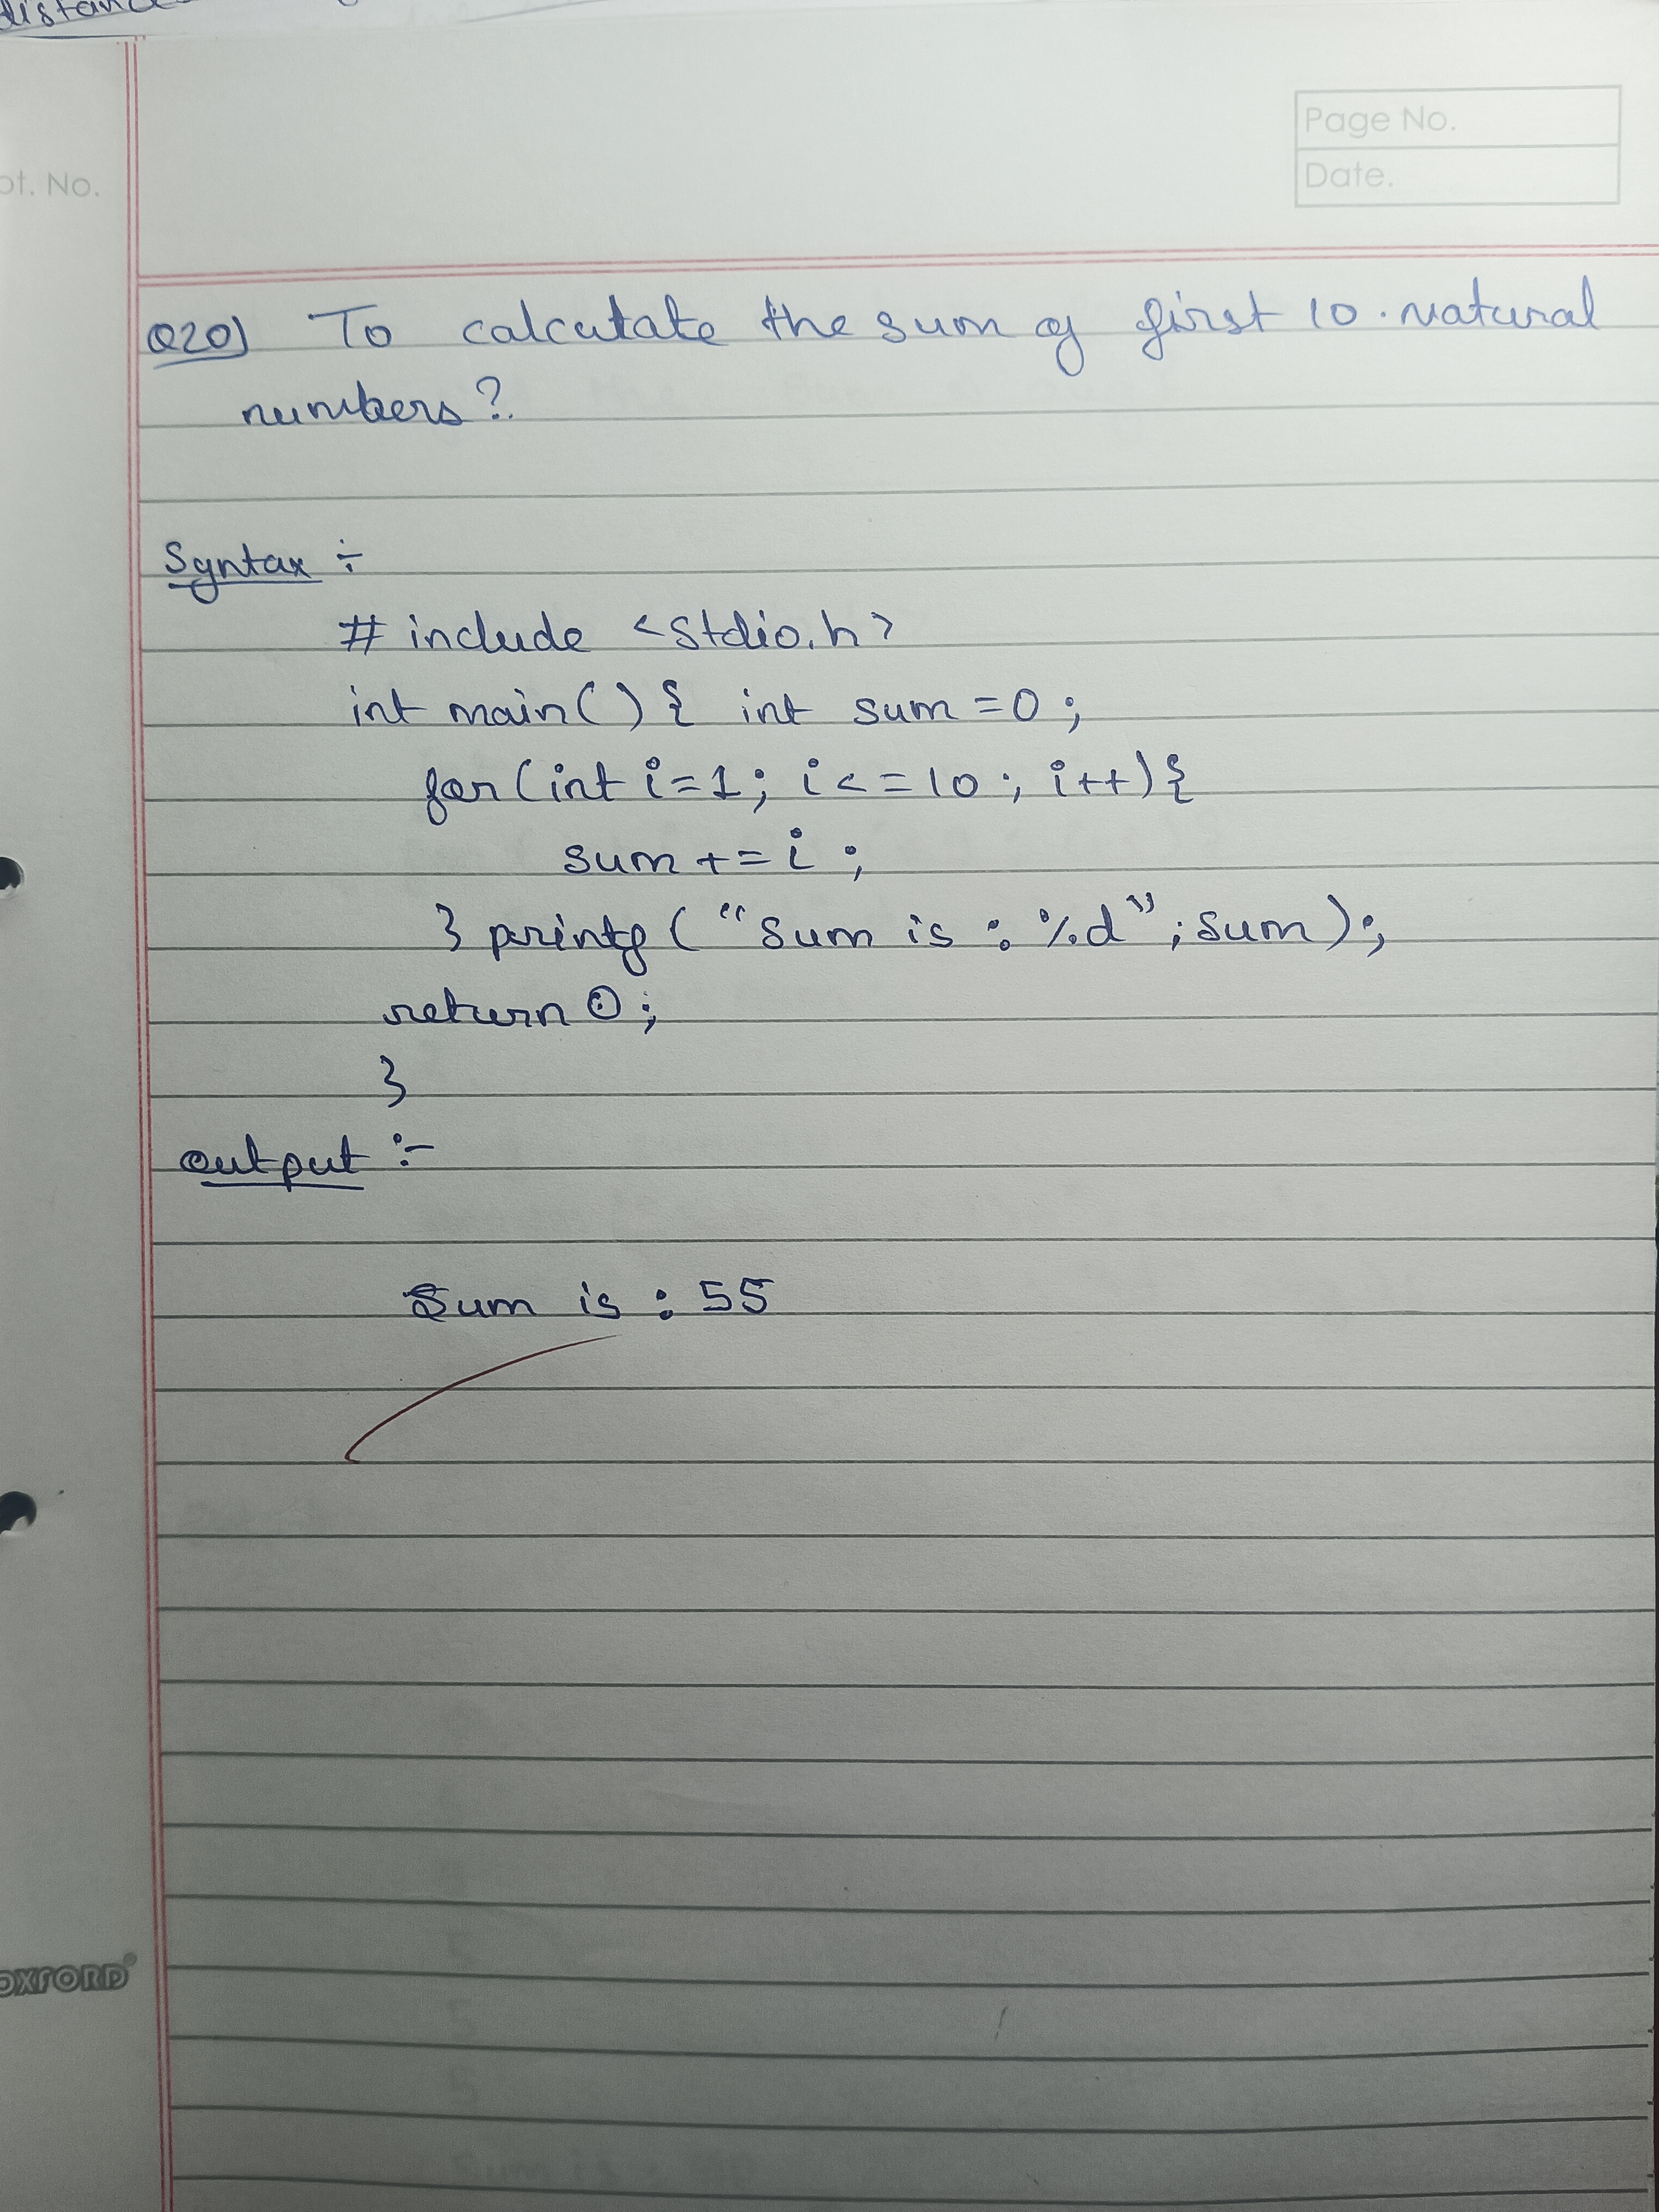 Page No.
Date.
pt. No.
Q20) To calculate the sum of first 10. natural
numbers?
Syntax :-
# include <stdio.h>
int main() { int sum = 0;
for (int i=1; i<=10; i++) {
sum += i ;
} printf ( "Sum is : %d" ; sum);
return 0;
}
output :-
Sum is : 55
OXFORD®